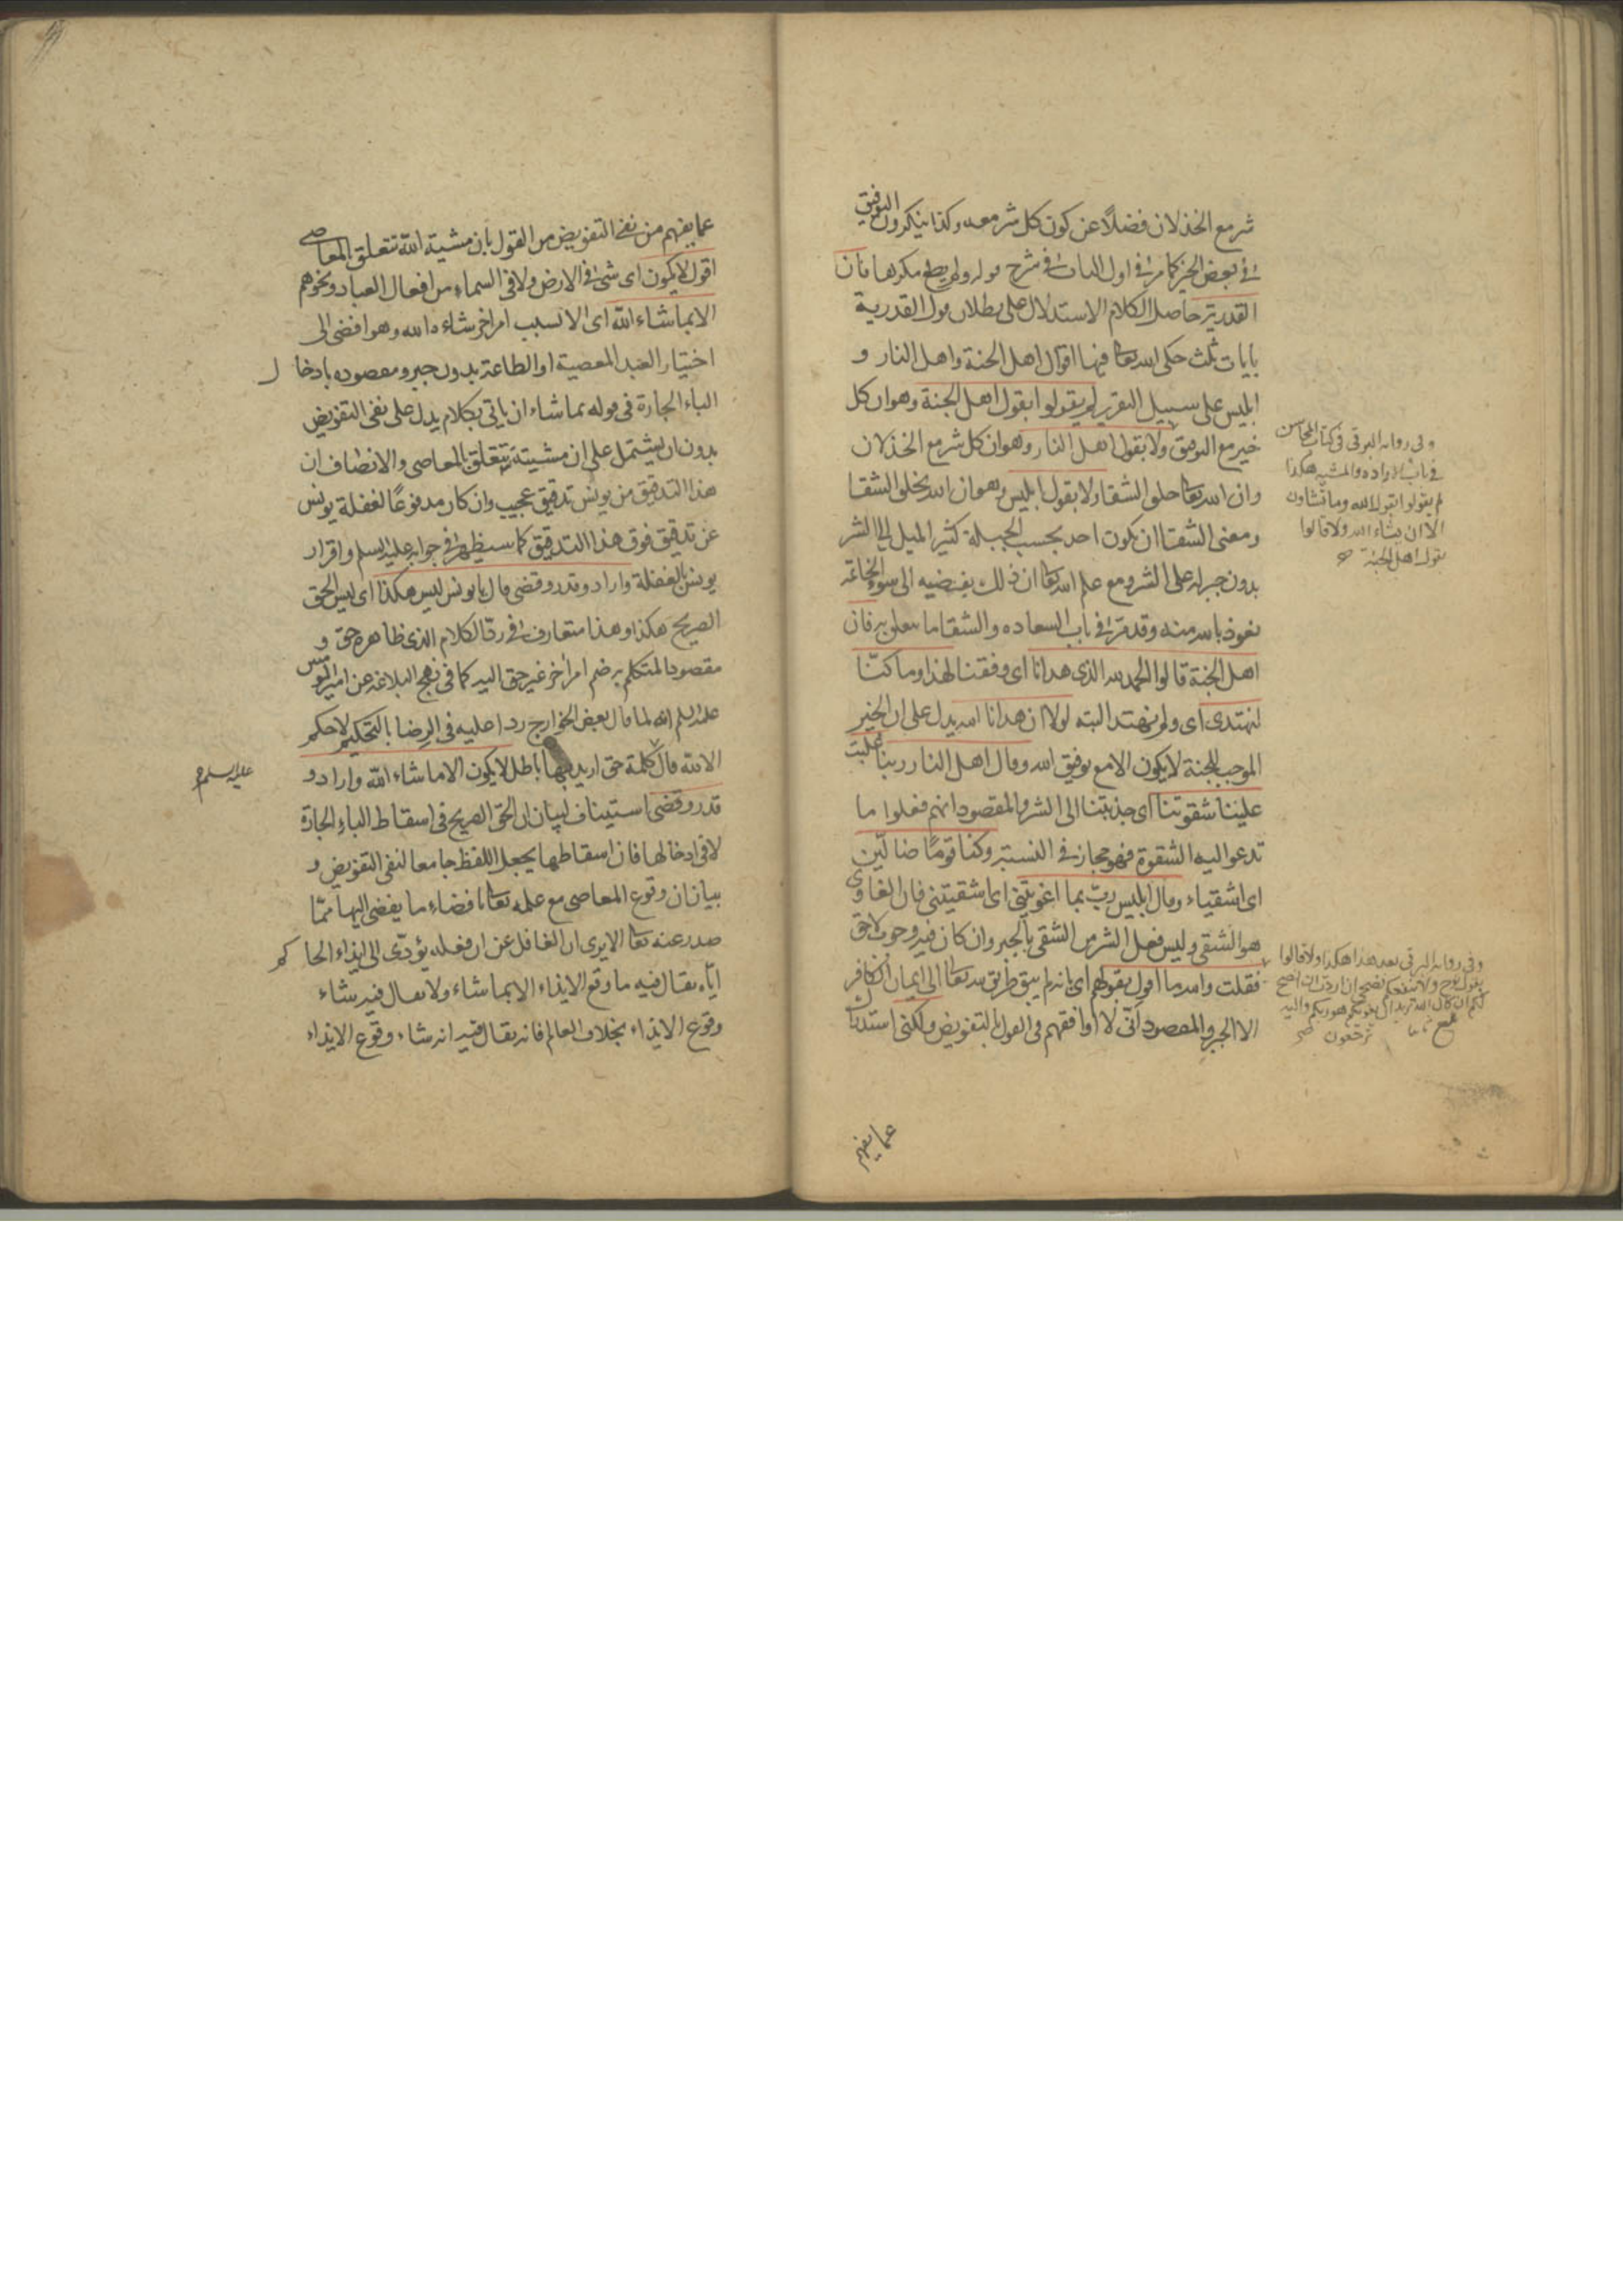 شر مع الخذلان فضلاً عن كون كل شر معه وكذا ينكرون التوفيق
في بعض الخير كما مر في اول الباب في شرح قوله ولم يطع مكرها فان
القدرية حاصل الكلام الاستدلال على بطلان قول القدرية
بايات ثلث حكى الله تعا فيها اقوال اهل الجنة واهل النار و
ابليس على سبيل التقرير لم يقولوا بقول اهل الجنة وهو ان كل
خير مع التوفيق ولا بقول اهل النار وهو ان كل شر مع الخذلان
وان الله تعا خلق الشقا ولا بقول ابليس وهو ان الله يخلق الشقا
ومعنى الشقا ان يكون احد بحسب الجبلة كثير الميل الى الشر
بدون جبر له على الشر ومع علم الله تعا ان ذلك يفضيه الى سوء الخاتمة
نعوذ بالله منه وقد مر في باب السعاده والشقا ما يتعلق به فان
اهل الجنة قالوا الحمد لله الذى هدانا اى وفقنا لهذا وما كنّا
لنهتدى اى ولم نهتد البته لولا ان هدانا الله يدل على ان الخير
الموجب للجنة لا يكون الا مع توفيق الله وقال اهل النار ربنا غلبت
علينا شقوتنا اى جذبتنا الى الشر والمقصود انهم فعلوا ما
تدعو اليه الشقوة فهو مجاز في النسبة وكنا قومًا ضالّين
اى اشقياء وقال ابليس ربّ بما اغويتنى اى اشقيتنى فان الغاوى
هو الشقى وليس فعل الشر من الشقى بالجبر وان كان فيه وجوب لاحق
فقلت والله ما اقول بقولهم اى انه لم يبق طريق لله تعا الى ايمان الكافر
الا الجبر والمقصود انّى لا اوافقهم فى القول بالتفويض ولكنى استدل
عما يفهم
وفى رواية البرقى فى كتاب المحاسن
فى باب الاراده والمشيه هكذا
لم يقولوا بقول الله وما تشاون
الا ان يشاء الله ولا قالوا
بقول اهل الجنة
وفى رواية البرقى بعد هذا هكذا ولا قالوا
بقول نوح ولا ينفعكم نصحى ان اردت ان انصح
لكم ان كان الله يريد ان يغويكم هو ربكم واليه
ترجعون
عما يفهم من نفى التفويض من القول بان مشية الله تتعلق بالمعاصى
اقول لا يكون اى شئ فى الارض ولا فى السماء من افعال العباد ونحوهم
الا بما شاء الله اى الا بسبب امر اخر شاءه الله وهو افضى الى
اختيار العبد المعصية او الطاعة بدون جبر ومقصوده بادخال
الباء الجارة فى قوله بما شاء ان ياتى بكلام يدل على نفى التفويض
بدون ان يشتمل على ان مشيته تتعلق بالمعاصى والانصاف ان
هذا التدقيق من يونس تدقيق عجيب وان كان مدفوعًا لغفلة يونس
عن تدقيق فوق هذا التدقيق كما سيظهر فى جوابه عليه السلم واقرار
يونس بالغفلة واراد وقدر وقضى قال يا يونس ليس هكذا اى ليس الحق
الصريح هكذا وهذا متعارف فى ردّ الكلام الذى ظاهره حق و
مقصود المتكلم به ضم امر اخر غير حق اليه كما فى نهج البلاغة عن امير المومنين
عليه السلم انه لما قال بعض الخوارج ردا عليه فى الرضا بالتحكيم لا حكم
الا لله قال كلمة حق اريد بها باطل لا يكون الا ما شاء الله واراد و
عليه السلم
قدر وقضى استيناف لبيان ان الحق الصريح فى اسقاط الباء الجارة
لا فى ادخالها فان اسقاطها يجعل اللفظ جامعا لنفى التفويض و
بيان ان وقوع المعاصى مع علمه تعا بافضاء ما يفضى اليها ممّا
صدر عنه تعا الا يرى ان الغافل عن ان فعله يؤدّى الى ايذاء الحاكم
ايّاه يقال فيه ما وقع الايذاء الا بما شاء ولا يقال فيه شاء
وقوع الايذاء بخلاف العالم فانه يقال فيه انه شاء وقوع الايذاء